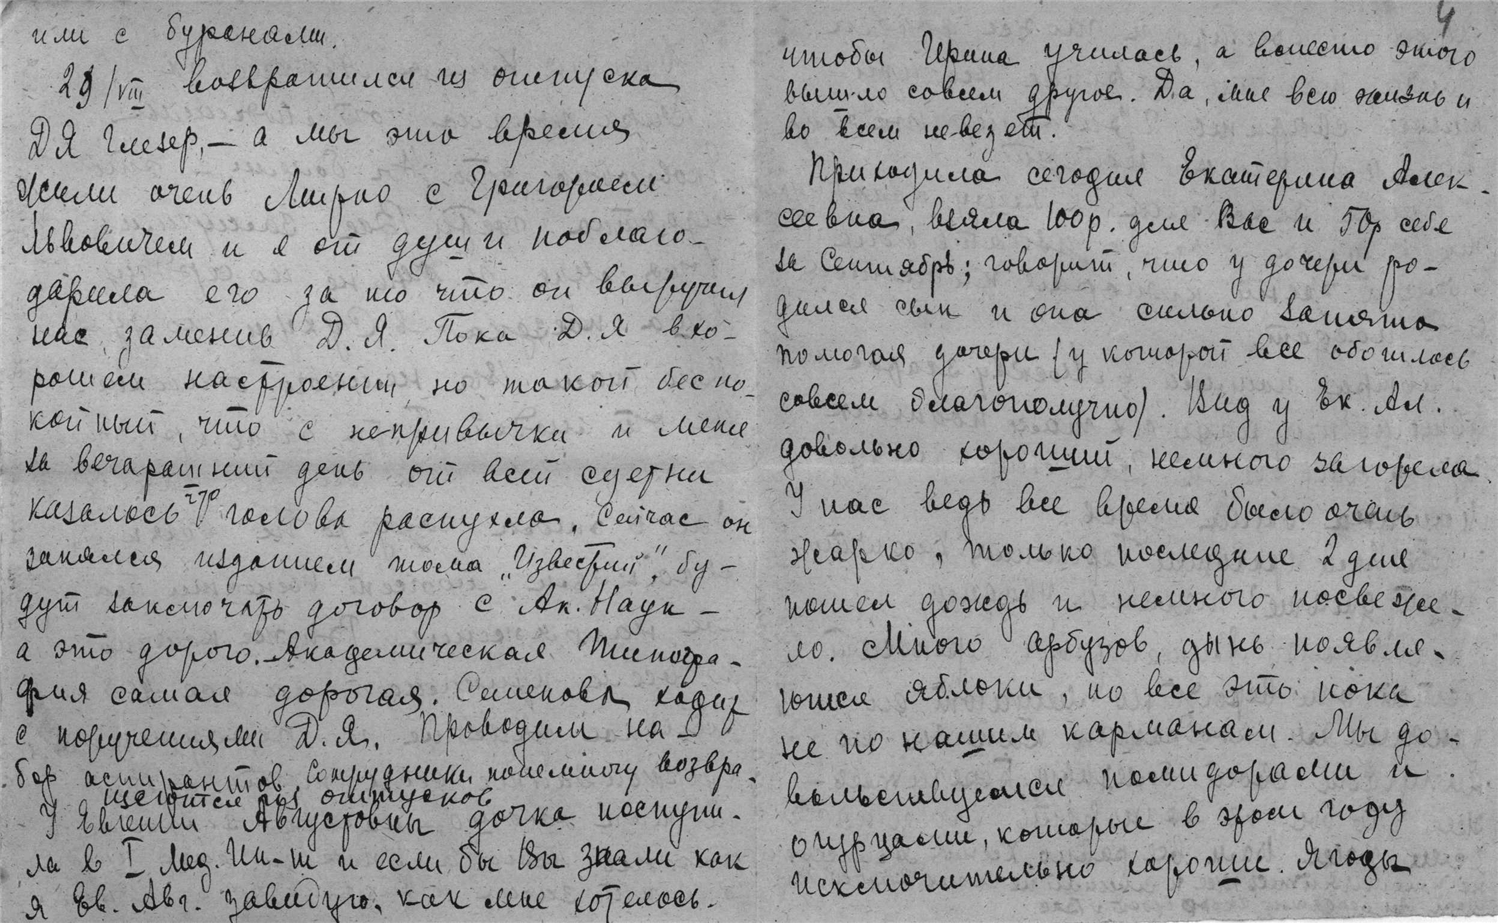 или с буранами.
29/VIII возвратился из отпуска
Д Я Глезер, — а мы это время
жили очень мирно с Григорием
Львовичем и я от души поблаго-
дарила его за то что он выручил
нас, заменив Д. Я. Пока Д. Я в хо-
рошем настроении, но такой беспо-
койный, что с непривычки и меня
за вечарашний день от всей суетни
казалось что голова распухла. Сейчас он
занялся изданием тома „Известий“, бу-
дут заключать договор с Ак. Наук —
а это дорого. Академическая Типогра-
фия самая дорогая. Семенова ходит
с поручениями Д. Я. Проводим на-
бор аспирантов, сотрудники понемногу возвра-
щаются из отпусков
У Евгении Августовны дочка поступи-
ла в I Мед. Ин-т и если бы Вы знали как
я Ев. Авг. завидую, как мне хотелось.
4
чтобы Ирина училась, а вместо этого
вышло совсем другое. Да, мне всю жизнь и
во всем невезет.
Приходила сегодня Екатерина Алек-
сеевна, взяла 100р. для Вас и 50р себе
за Сентябрь; говорит, что у дочери ро-
дился сын и она сильно занята
помогая дочери (у которой все обошлось
совсем благополучно). Вид у Ек. Ал.
довольно хороший, немного загорела.
У нас ведь все время было очень
жарко, только последние 2 дня
пошел дождь и немного посвеже-
ло. Много арбузов, дынь, появля-
ются яблоки, но все это пока
не по нашим карманам. Мы до-
вольствуемся помидорами и
огурцами, которые в этом году
исключительно хороши. Ягоды